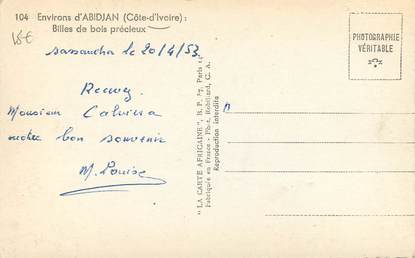 104 Environs d'ABIDJAN (Côte-d'Ivoire) :
Billes de bois précieux
15€
Sassandra le 20/4/53
Recevez
Monsieur Calviera
notre bon souvenir
M. Louise
PHOTOGRAPHIE
VÉRITABLE
"LA CARTE AFRICAINE", B. P. Paris
Fabriquée en France - Phot. Robillard, C. A.
Reproduction interdite